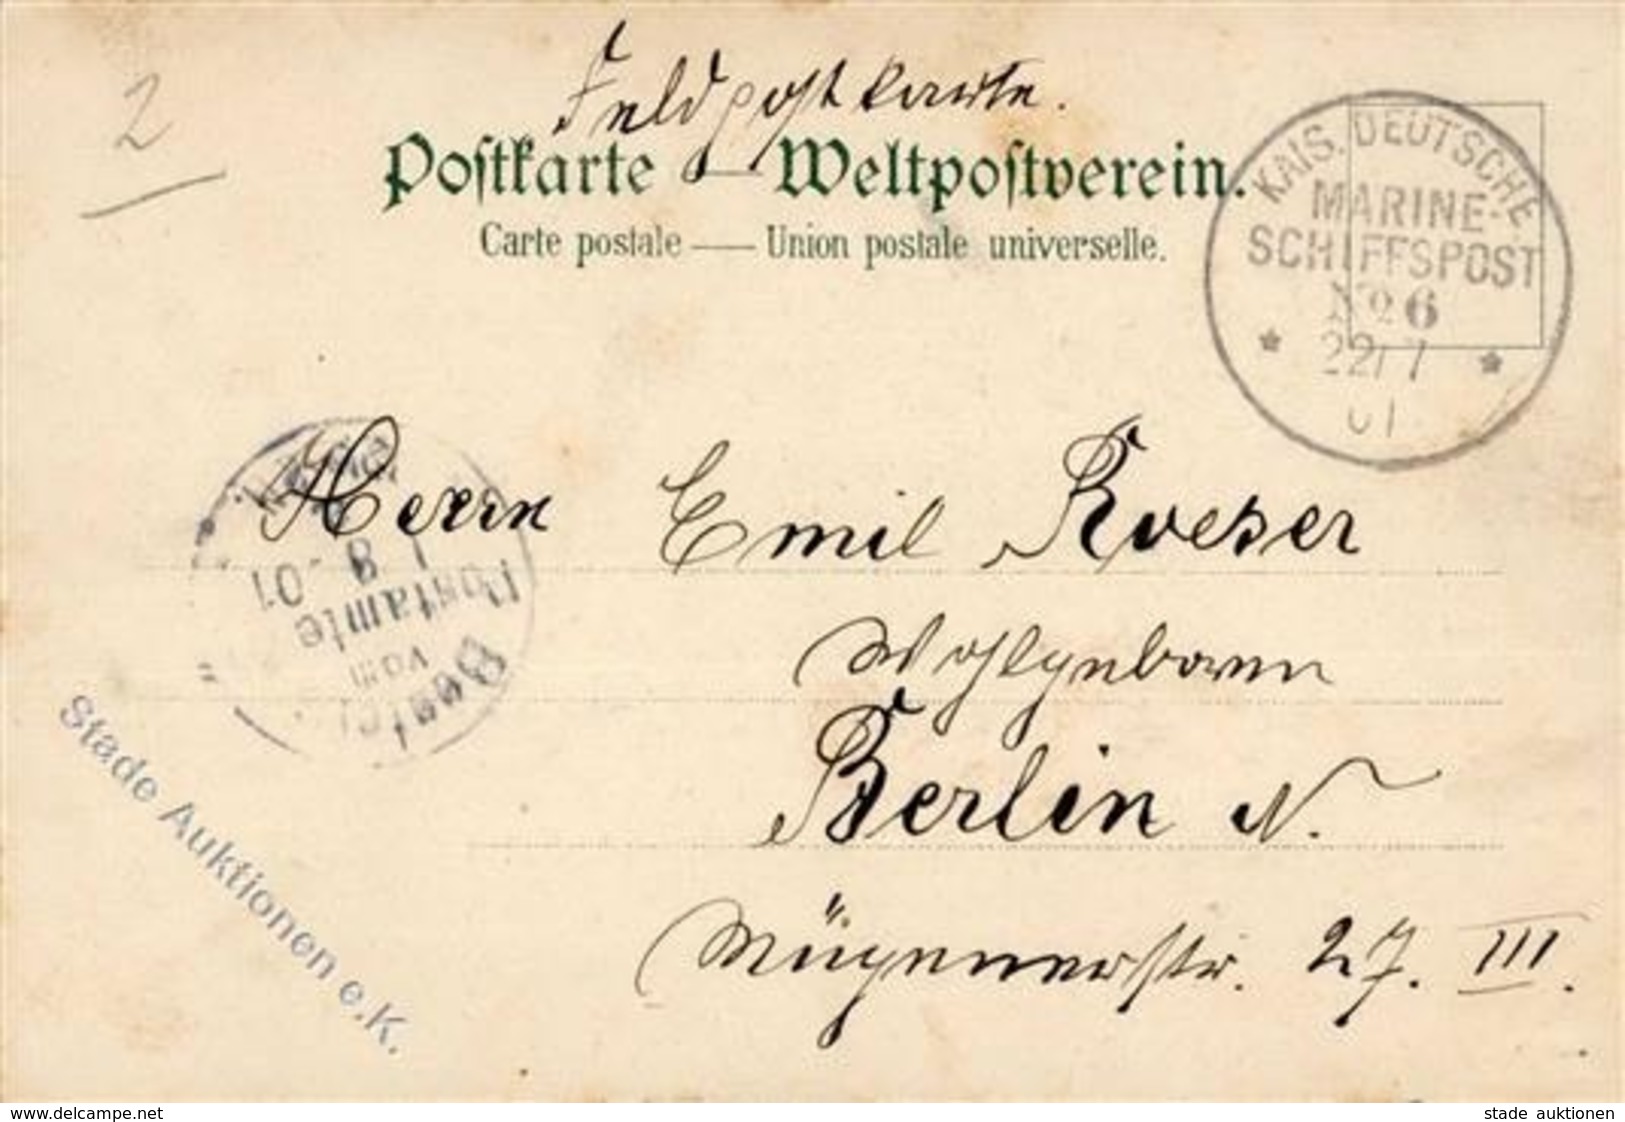 2
Feldpostkarte.
Postkarte — Weltpostverein.
Carte postale — Union postale universelle.
KAIS. DEUTSCHE
MARINE-
SCHIFFSPOST
No 6
22/7
01
Herrn Emil Roeser
Wohlgeboren
Berlin N.
27. III.
Bestellt
vom
Postamte
1 8 -01
Stade Auktionen e.K.
www.delcampe.net
stade auktionen